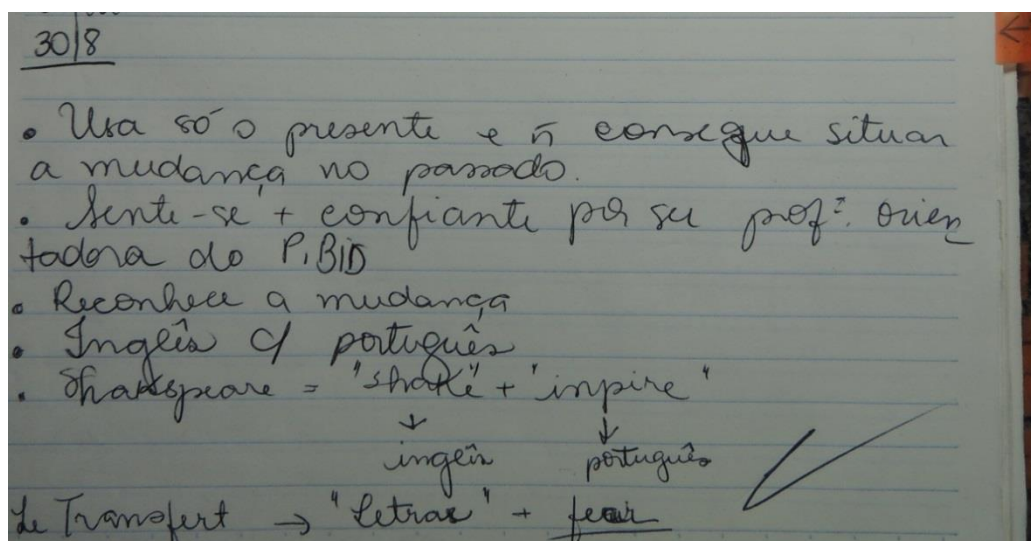 30/8
• Usa só o presente e ñ consegue situar
a mudança no passado.
• Sente-se + confiante por ser profª. orien
tadora do P.BID
• Reconhece a mudança
• Inglês c/ português
• Shakspeare = "shake" + "inpire"
↓ ↓
ingeis português
Le Transfert → "Letras" +